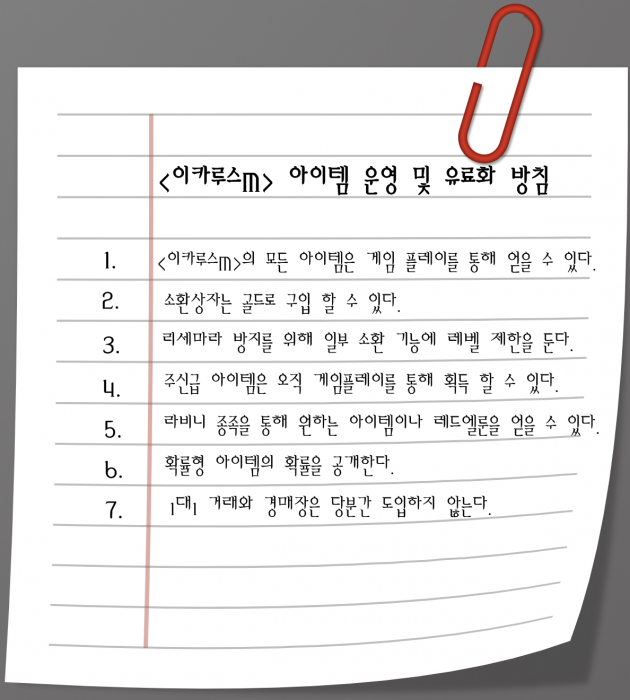 <이카루스m> 아이템 운영 및 유료화 방침
1. <이카루스m>의 모든 아이템은 게임 플레이를 통해 얻을 수 있다.
2. 소환상자는 골드로 구입 할 수 있다.
3. 리세마라 방지를 위해 일부 소환 기능에 레벨 제한을 둔다.
4. 주신급 아이템은 오직 게임플레이를 통해 획득 할 수 있다.
5. 라비니 종족을 통해 원하는 아이템이나 레드엘룬을 얻을 수 있다.
6. 확률형 아이템의 확률을 공개한다.
7. 1대1 거래와 경매장은 당분간 도입하지 않는다.